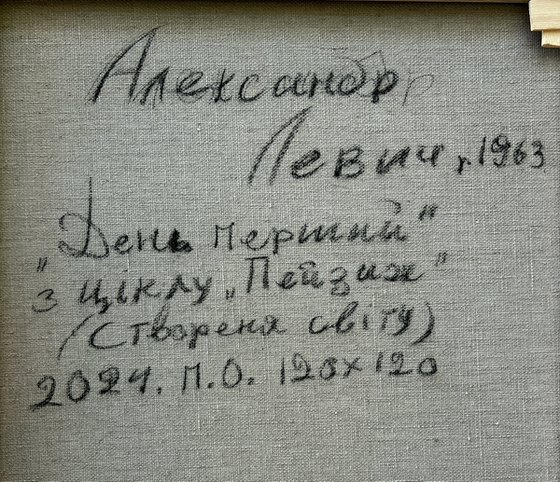 Александр
Левич, р.1963
„День перший"
з циклу „Пейзаж"
(Створеня світу)
2024. П.О. 120x120